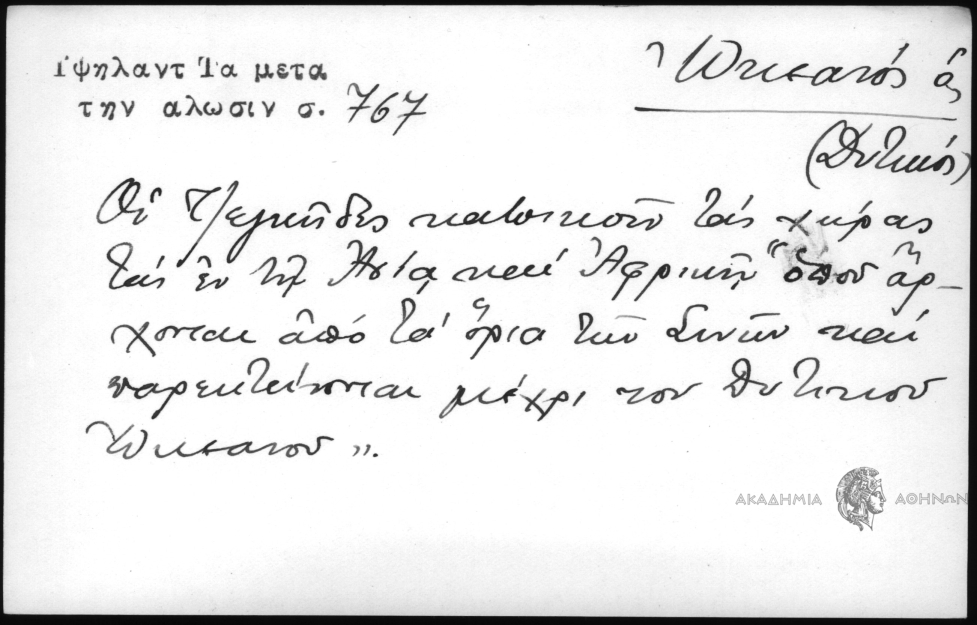 Ὑψηλαντ Τα μετα
την αλωσιν σ. 767
Ὠκεανός ὁ
(Δυτικός)
Οἱ κατοικοῦν τάς χώρας
τάς ἐν τῇ Ἀσίᾳ καί Ἀφρικῇ "ὅπου ἄρ-
χονται ἀπό τά ὅρια τῶν Σινῶν καί
παρεκτείνονται μέχρι του Δυτικοῦ
Ὠκεανοῦ".
ΑΚΑΔΗΜΙΑ ΑΘΗΝΩΝ